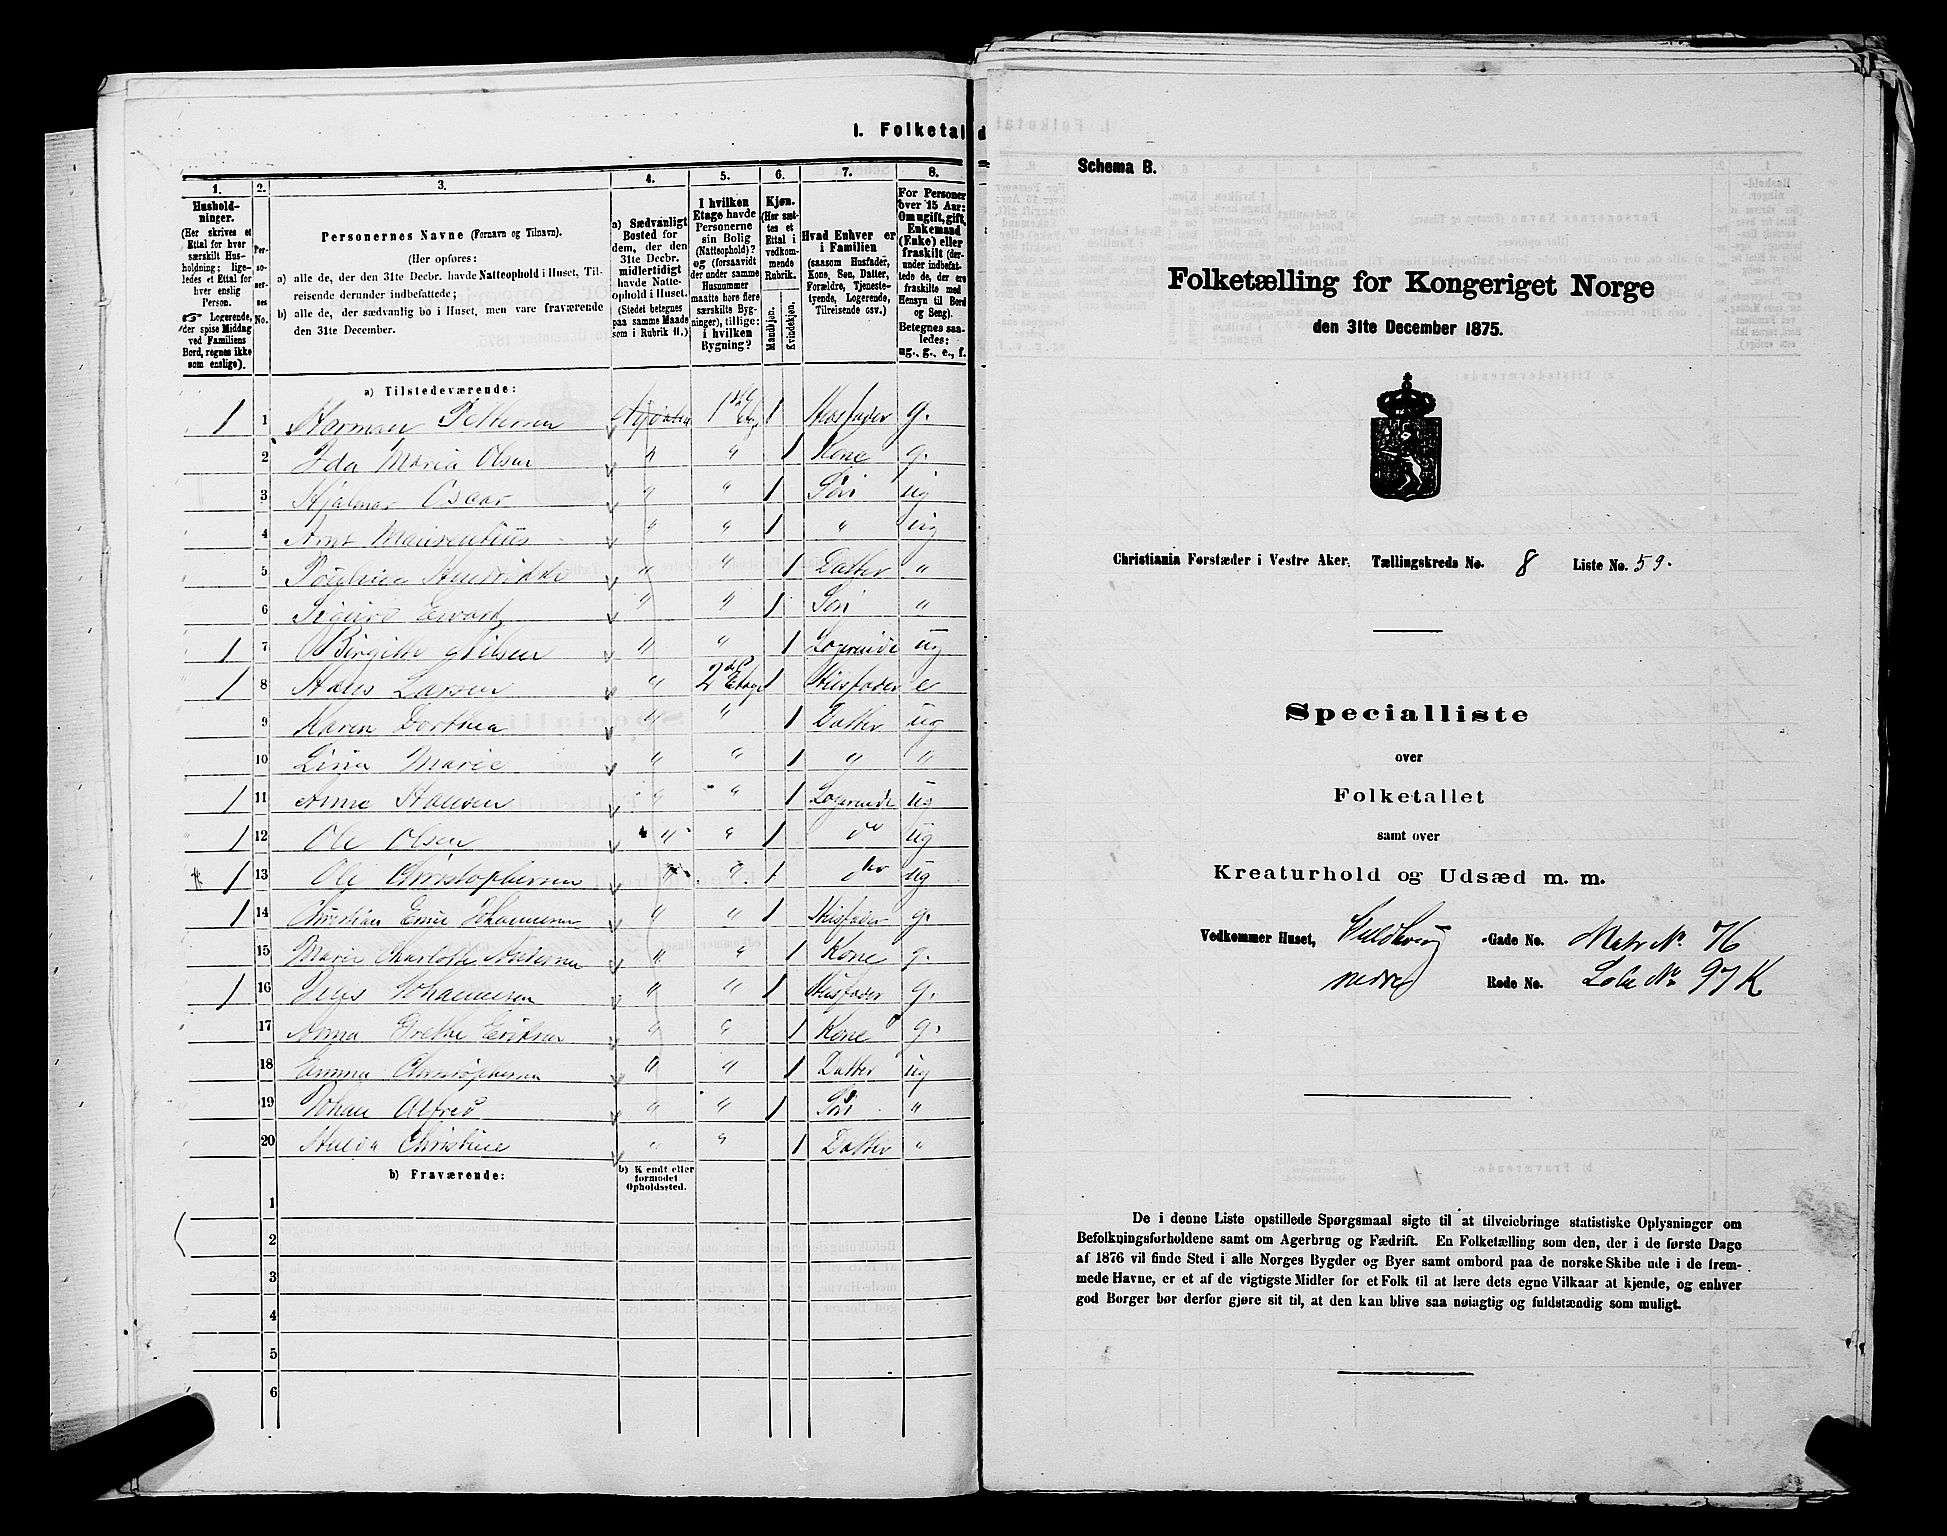 I. Folketal
1. 2. 3. 4. 5. 6. 7. 8.
Hushold-
ninger.
(Her skrives et
Ettal for hver
særskilt Hus-
holdning; lige-
ledes et Ettal for
hver enslig
Person.
☞ Logerende,
der spise Middag
ved Familiens
Bord, regnes ikke
som enslige).
Per-
so-
ner-
nes
No.
Personernes Navne (Fornavn og Tilnavn).
(Her opføres:
a) alle de, der den 31te Decbr. havde Natteophold i Huset, Til-
reisende derunder indbefattede;
b) alle de, der sædvanlig bo i Huset, men vare fraværende
den 31te December.
a) Sædvanligt
Bosted for
dem, der den
31te Decbr.
midlertidigt
havde Natte-
ophold i Huset.
(Stedet betegnes
paa samme Maade
som i Rubrik 11.)
I hvilken
Etage havde
Personerne
sin Bolig
(Natteophold)?
og (forsaavidt
der under samme
Husnummer
maatte høre flere
særskilte Byg-
ninger), tillige:
i hvilken
Bygning?
Kjøn.
(Her sæt-
tes et
Ettal i
vedkom-
mende
Rubrik.
Mandkjøn.
Kvindekjøn.
Hvad Enhver er
i Familien
(saasom Husfader,
Kone, Søn, Datter,
Forældre, Tjeneste-
tyende, Logerende,
Tilreisende osv.)
For Personer
over 15 Aar:
Om ugift, gift,
Enkemand
(Enke) eller
fraskilt (der-
under indbefat-
tede de, der ere
fraskilte med
Hensyn til Bord
og Seng).
Betegnes saa-
ledes:
ug., g., e., f.
a) Tilstedeværende:
1 1 Herman Pettersen 1ste Etag 1 Husfader g.
2 Ida Maria Olsen " " 1 Kone g.
3 Hjalmar Oscar " " 1 Søn ug
4 Arnt " " 1 " ug
5 " " 1 Datter "
6 Sigurd Edvard " " 1 Søn "
1 7 Birgitte Nilsen " " 1 Logerende ug
1 8 Hans Larsen " 2den Etage 1 Husfader e
9 Karen Dorthea " " 1 Datter ug
10 Lina Marie " " 1 " "
1 11 Anne Hansen " " 1 Logerende ug
1 12 Ole Olsen " " 1 do ug
1 13 Ole Christophersen " " 1 do ug
1 14 Christian Emil Johannesen " " 1 Husfader g.
15 Marie Charlotte Andersen " " 1 Kone g.
1 16 Jens Johannesen " " 1 Husfader g.
17 Anna Grethe Eriksen " " 1 Kone g.
18 Emma Christophersen " " 1 Datter ug
19 Johan Alfred " " 1 Søn "
20 Hulda Christine " " 1 Datter "
b) Fraværende:
b) Kjendt eller
formodet
Opholdssted.
1
2
3
4
5
6
Schema B.
Folketælling for Kongeriget Norge
den 31te December 1875.
Christiania Forstæder i Vestre Aker. Tællingskreds No. 8 Liste No. 59.
Specialliste
over
Folketallet
samt over
Kreaturhold og Udsæd m. m.
Vedkommer Huset, -Gade No. Matr No. 76
nedre Rode No. Lobe No 97 K
De i denne Liste opstillede Spørgsmaal sigte til at tilveiebringe statistiske Oplysninger om
Befolkningsforholdene samt om Agerbrug og Fædrift. En Folketælling som den, der i de første Dage
af 1876 vil finde Sted i alle Norges Bygder og Byer samt ombord paa de norske Skibe ude i de frem-
mede Havne, er et af de vigtigste Midler for et Folk til at lære dets egne Vilkaar at kjende, og enhver
god Borger bør derfor gjøre sit til, at den kan blive saa nøiagtig og fuldstændig som muligt.